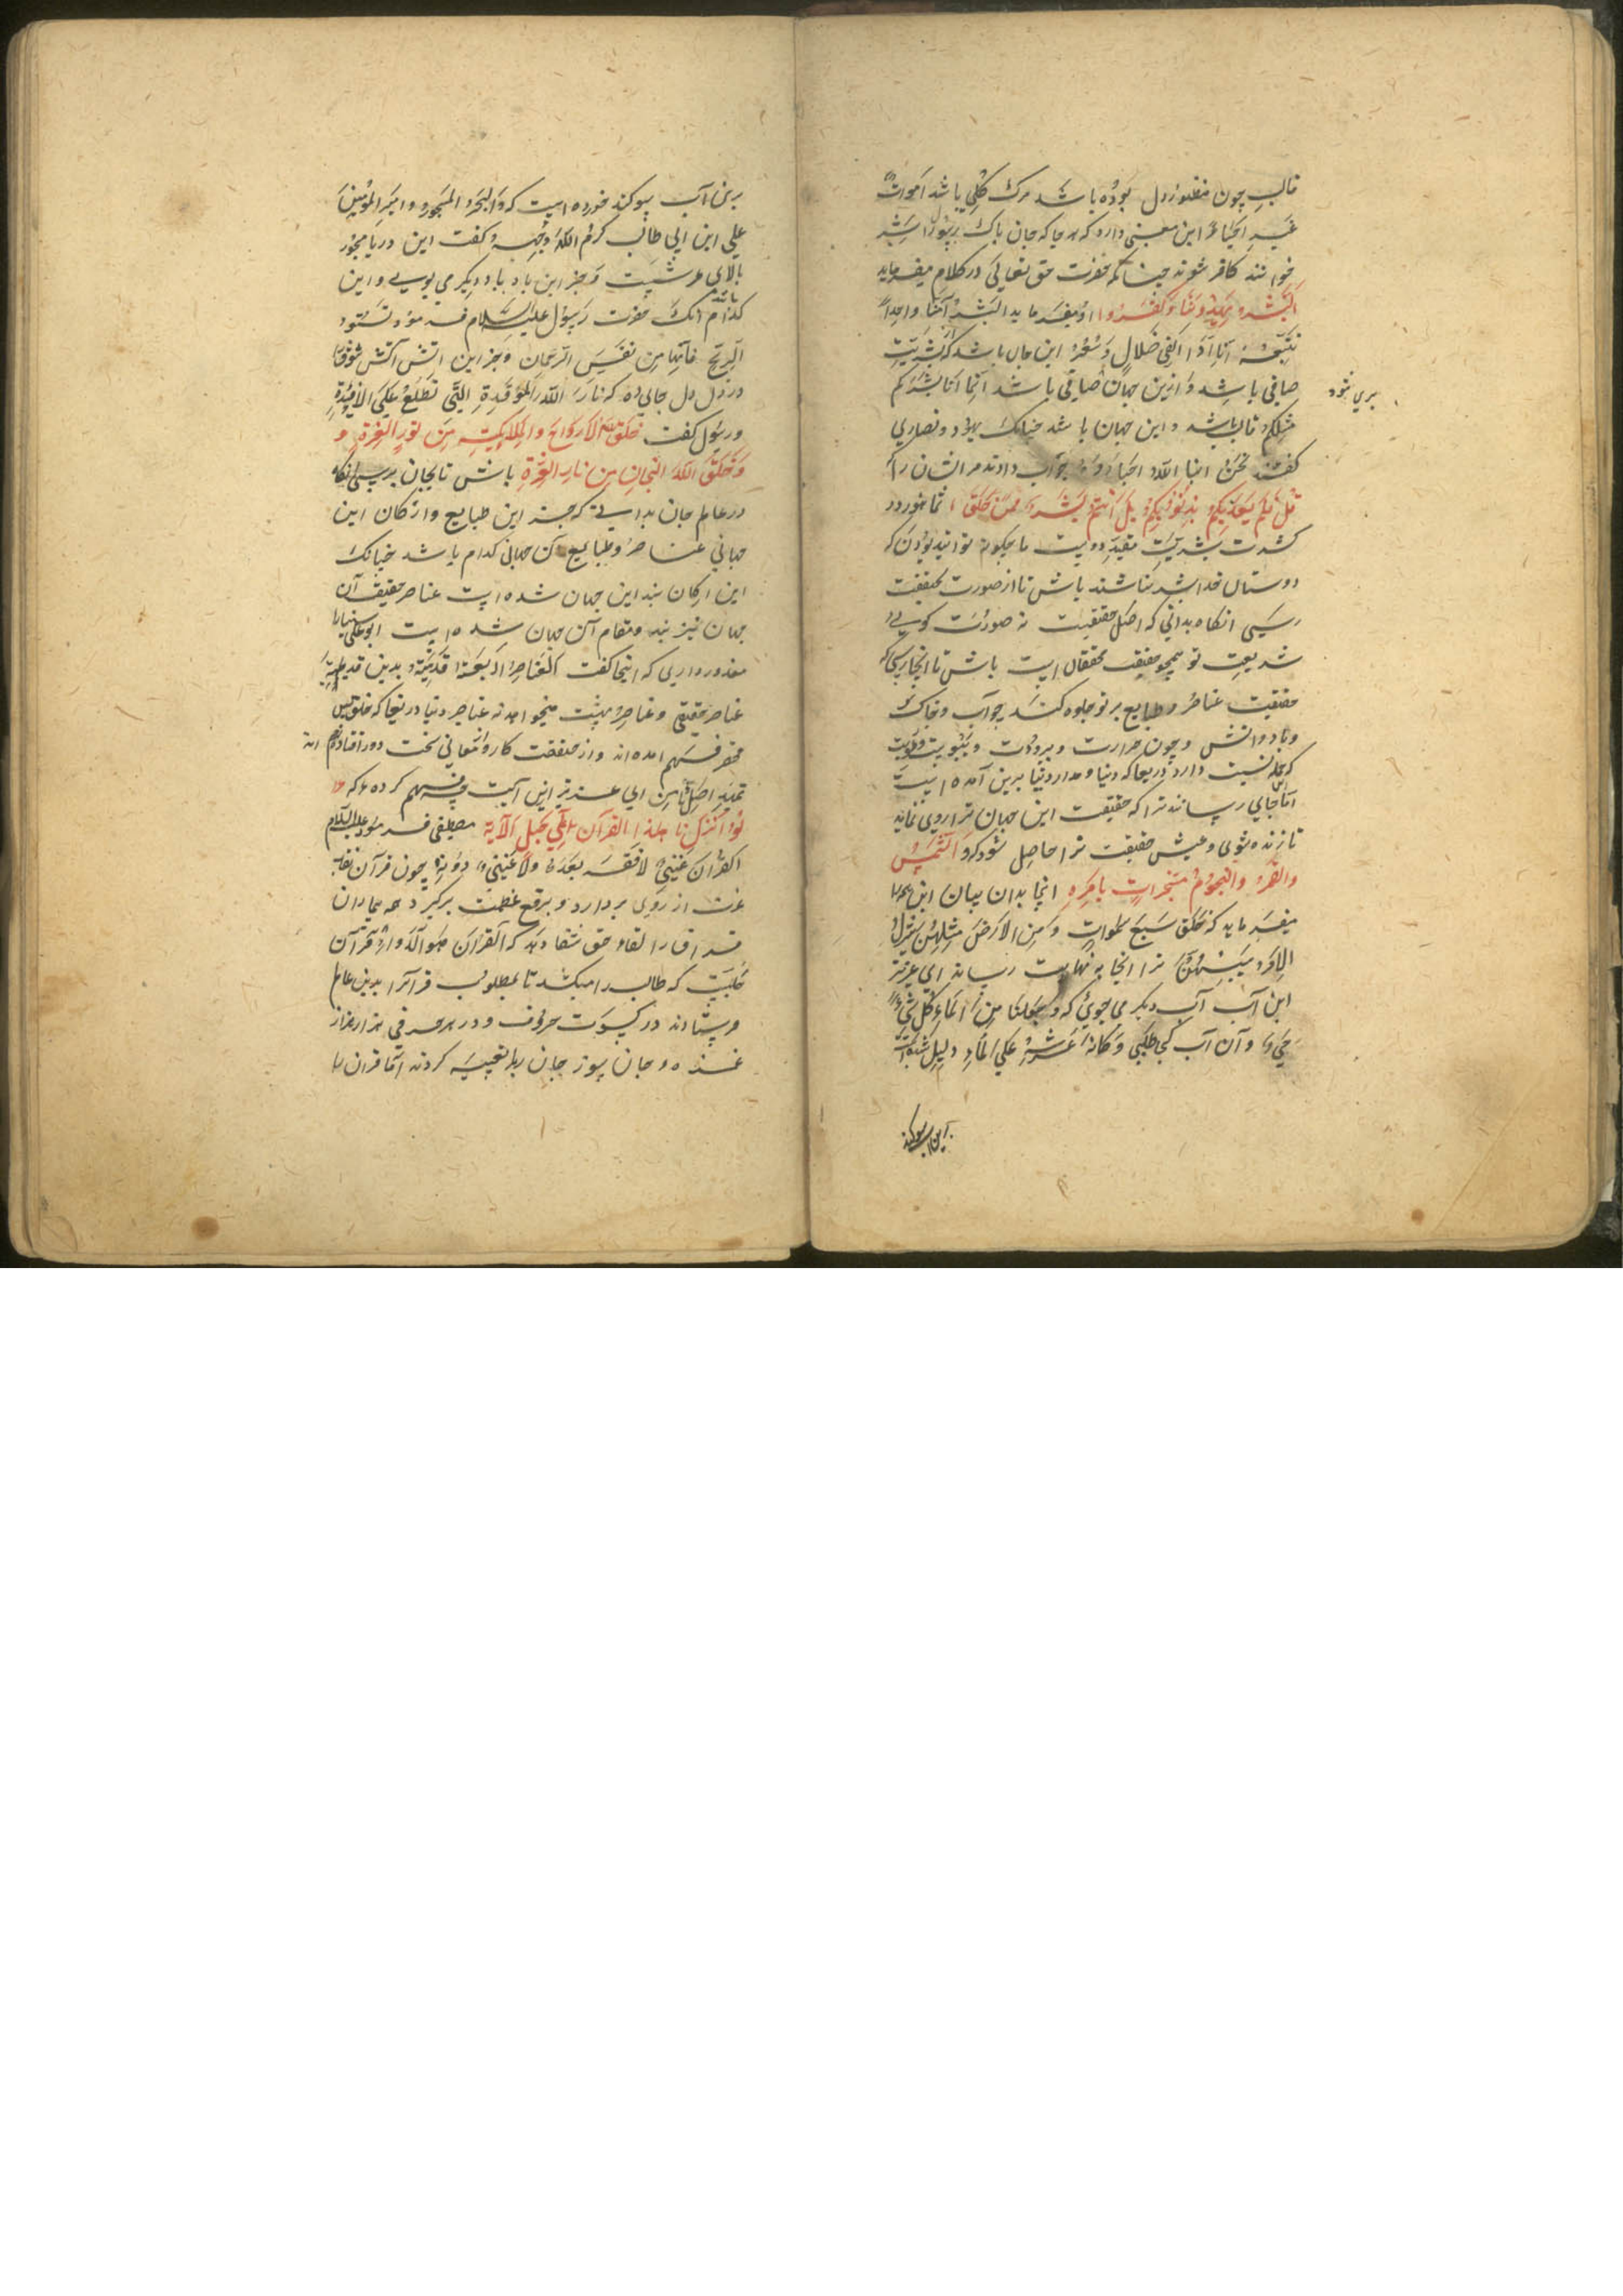 قالب چون منظور دل بوده باشد مرک کلی باشد اَموات
غیر احیاء این معنی دارد که هر جا که جان پاک رسول را بشر
خوانند کافر شوند چنانکه حضرت حق تعالی در کلام میفرماید
اَبَشَر یَهدُونَنا وَکَفَرُوا او میفرماید اَبَشَراً مِنّا واحِداً
نَتَّبِعُهُ اِنّا اِذاً لَفی ضَلالٍ وَسُعُر این جان باشد که از بشریت
صافی باشد و ازین جهان صافی باشد اِنَّما اَنَا بَشَرٌ
بری شود
مِثلُکُم قالب باشد و این جهان باشد چنانک یهود و نصاری
کفتند نَحنُ ابناءُ اللّه احباؤه جواب دادند مر ایشان را که
قُل فَلِمَ یُعَذِّبُکُم بِذُنُوبِکُم بَل اَنتُم بَشَرٌ مِمَّن خَلَقَ
بشریت مقید دوست ما چکونه توانید بودن که
دوستان خدا بشر نباشند باش تا از صورت بحقیقت
رسی انکاه بدانی که اصل حقیقت نه صورت کویی
شریعت تو همچو حقیقت محققان است باش تا انجا رسی که
حقیقت عناصر و طبایع بر تو جلوه کند چو آب و خاک
و باد و اتش و چون حرارت و برودت و یبوست و رطوبت
که جمله نسبت دارد دریغا که دنیا و مدار دنیا برین آمده است
اما جایی رساند ترا که حقیقت این جهان ترا روی نماید
تا زنده شوی و عیش حقیقت ترا حاصل شود که وَ الشَّمسُ
وَالقَمَرُ وَالنُجُومُ مُسَخَّراتٍ بِاَمرِه انجا بدان بیان این همه
میفرماید که خَلَقَ سَبعَ سَمواتٍ وَمِنَ الاَرضِ مِثلَهُنَّ یَتَنَزَّلُ
الاَمرُ بَینَهُنَّ ترا انجا به نهایت رساند ای عزیز
این آب آب دیکر می جوئی که وَجَعَلنا مِنَ الماءِ کُلَّ شَیءٍ
حَیّ و آن آب کجا طلبی وَکانَ عَرشُهُ عَلَی الماءِ دلیل شده است
برین آب سوکند
برین آب سوکند خورده است که وَالبَحرِ المَسجُورِ و امیر المؤمنین
علی ابن ابی طالب کرم اللّه وجهه کفت این دریا مسجور
بالای عرش است و بجز این باد باد دیکر می بویی و این
باد
کدام انک حضرت رسول علیه السلام فرمود لا تَسُبُّوا
الریحَ فَاِنَّها مِن نَفَسِ الرَّحمان و بجز این اتش آتش شوق را
در دل جای ده که نارُ اللّهِ المُوقَدَةُ الَّتی تَطَّلِعُ عَلَی الاَفئِدَة
و رسول کفت خَلَقَ اللّهُ الاَرواحَ وَالمَلائِکَةَ مِن نُورِ العِزَّة و
وَخَلَقَ اللّهُ الجانَّ مِن نارِ العِزَّةِ باش تا بجان برسی انکاه
در عالم جان بدانی که جز این طبایع و ارکان این
جهانی عناصر و طبایع آن جهانی کدام باشد چنانک
این ارکان بند این جهان شده است عناصر حقیقت آن
جهان نیز بند و مقام آن جهان شده است ابو علی سینا را
معذور داری که انجا کفت العَناصِرُ الاَربَعَةُ قَدیمَةٌ بدین قدیمه
عناصر حقیقی و عناصر بهشت میخواهد نه عناصر دنیا دریغا که خلق بس
مختصر فهم امده اند و از حقیقت کار و معانی سخت دور افتاده اند
تمهید اصل ثامن ای عزیز این آیت چه فهم کرده ٔ که
لَو اَنزَلنا هذَا القُرآنَ عَلی جَبَلٍ الآیة مصطفی فرمود علیه السلام
القُرآنُ غِنیً لا فَقرَ بَعدَهُ وَلا غِنیً دُونَه چون قرآن نقاب
عزت از روی بردارد و برقع عظمت برکیرد همه بیماران
فراق را لقاء حق شفا دهد که القُرآنُ هُوَ الدَّواء قرآن
حبلیست که طالب را میکشد تا بمطلوب قرآن را بدین عالم
فرستادند در کسوت حروف و در هر حرفی هزار هزار
غمزه ٔ جان سوز جان ربا تعبیه کردند امّا قرآن را